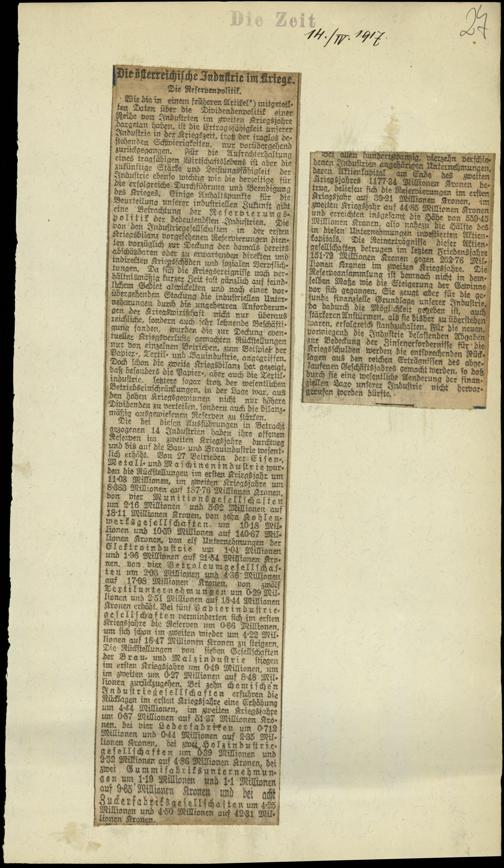 Die Zeit
14./IV. 1917.
27
Die österreichische Industrie im Kriege.
Die Reservenpolitik.
Wie die in einem früheren Artikel*) mitgeteil-
ten Daten über die Dividendenpolitik einer
Reihe von Industrien im zweiten Kriegsjahre
dargetan haben, ist die Ertragsfähigkeit unserer
Industrie in der Kriegszeit, trotz der fraglos be-
stehenden Schwierigkeiten, nur vorübergehend
zurückgegangen. Für die Aufrechterhaltung
eines tragfähigen Wirtschaftslebens ist aber die
zukünftige Stärke und Leistungsfähigkeit der
Industrie ebenso wichtig wie die derzeitige für
die erfolgreiche Durchführung und Beendigung
des Krieges. Einige Anhaltspunkte für die
Beurteilung unserer industriellen Zukunft gibt
eine Betrachtung der Reservierungs-
politik der bedeutendsten Industrien. Die
von den Industriegesellschaften in der ersten
Kriegsbilanz vorgesehenen Reservierungen dien-
ten vorzüglich zur Deckung der damals bereits
abschätzbaren oder zu erwartenden direkten und
indirekten Kriegsschäden und sozialen Verpflich-
tungen. Da für die Kriegsereignisse nach ver-
hältnismäßig kurzer Zeit fast gänzlich auf feind-
lichem Gebiet abwickelten und nach einer vor-
übergehenden Stockung die industriellen Unter-
nehmungen durch die ungeheuren Anforderun-
gen der Kriegswirtschaft nicht nur überaus
reichliche, sondern auch sehr lohnende Beschäfti-
gung fanden, wurden die zur Deckung even-
tueller Kriegsverluste gemachten Rückstellungen
nur von einzelnen Betrieben, zum Beispiel der
Papier-, Textil- und Bauindustrie, angegriffen.
Doch schon die zweite Kriegsbilanz hat gezeigt,
daß besonders die Papier-, aber auch die Textil-
industrie, letztere sogar trotz der wesentlichen
Betriebseinschränkungen, in der Lage war, aus
den hohen Kriegsgewinnen nicht nur höhere
Dividenden zu verteilen, sondern auch die bilanz-
mäßig ausgewiesenen Reserven zu stärken.
Die bei diesen Ausführungen in Betracht
gezogenen 14 Industrien haben ihre offenen
Reserven im zweiten Kriegsjahr durchweg
und bis auf die Bau- und Brauindustrie wesent-
lich erhöht. Von 27 Betrieben der Eisen-,
Metall- und Maschinenindustrie wur-
den die Rückstellungen im ersten Kriegsjahr um
11·03 Millionen, im zweiten Kriegsjahre um
Millionen auf 137·76 Millionen Kronen,
von vier Munitionsgesellschaften
um 2·16 Millionen und 5·92 Millionen auf
18·11 Millionen Kronen, von zehn Kohlen-
werksgesellschaften um 10·18 Mil-
lionen und 10·39 Millionen auf 140·67 Mil-
lionen Kronen, von elf Unternehmungen der
Elektroindustrie um 1·04 Millionen
und 1·36 Millionen auf 21·54 Millionen Kro-
nen, von vier Petroleumgesellschaf-
ten um 2·93 Millionen und 4·36 Millionen
auf 17·98 Millionen Kronen, von zwölf
Textilunternehmungen um 0·29 Mil-
lionen und 2·51 Millionen auf 18·44 Millionen
Kronen erhöht. Bei fünf Papierindustrie-
gesellschaften verminderten sich im ersten
Kriegsjahre die Reserven um 0·66 Millionen,
um sich schon im zweiten wieder um 4·22 Mil-
lionen auf 16·47 Millionen Kronen zu steigern.
Die Rückstellungen von sieben Gesellschaften
der Brau- und Malzindustrie stiegen
im ersten Kriegsjahre um 0·49 Millionen, um
im zweiten um 0·27 Millionen auf 8·48 Mil-
lionen zurückzugehen. Bei zehn chemischen
Industriegesellschaften erfuhren die
Rücklagen im ersten Kriegsjahre eine Erhöhung
um 4·44 Millionen, im zweiten Kriegsjahre
um 0·57 Millionen auf 51·37 Millionen Kro-
nen, bei vier Lederfabriken um 0·712
Millionen und 0·44 Millionen auf 2·35 Mil-
lionen Kronen, bei zwei Holzindustrie-
gesellschaften um 0·39 Millionen und
2·32 Millionen auf 4·86 Millionen Kronen, bei
zwei Gummifabriksunternehmun-
gen um 1·19 Millionen und 1·1 Millionen
auf 9·65 Millionen Kronen und bei acht
Zuckerfabriksgesellschaften um 4·25
Millionen und 4·50 Millionen auf 42·31 Mil-
lionen Kronen.
Bei allen hundertzwanzig, vierzehn verschie-
denen Industrien angehörigen Unternehmungen,
deren Aktienkapital am Ende des zweiten
Kriegsjahres 1177·34 Millionen Kronen be-
trug, beliefen sich die Reservierungen im ersten
Kriegsjahr auf 39·21 Millionen Kronen, im
zweiten Kriegsjahr auf 44·65 Millionen Kronen
und erreichten insgesamt die Höhe von 530·45
Millionen Kronen, also nahezu die Hälfte des
in diesen Unternehmungen investierten Aktien-
kapitals. Die Reinerträgnisse dieser Aktien-
gesellschaften betrugen im letzten Friedensjahre
151·72 Millionen Kronen gegen 202·76 Mil-
lionen Kronen im zweiten Kriegsjahre. Die
Reservenansammlung ist demnach nicht in dem-
selben Maße wie die Steigerung der Gewinne
vor sich gegangen. Sie zeugt aber für die ge-
sunde finanzielle Grundlage unserer Industrie,
da dadurch die Möglichkeit gegeben ist, auch
stärkeren Anstürmen, als sie bisher zu überstehen
waren, erfolgreich standzuhalten. Für die neuen,
vorwiegend die Industrie belastenden Abgaben
zur Bedeckung der Zinsenerfordernisse für die
Kriegsschulden werden die entsprechenden Rück-
lagen aus den reichen Erträgnissen des abge-
laufenen Geschäftsjahres gemacht werden, so daß
durch sie eine wesentliche Aenderung der finan-
ziellen Lage unserer Industrie nicht hervor-
gerufen werden dürfte.